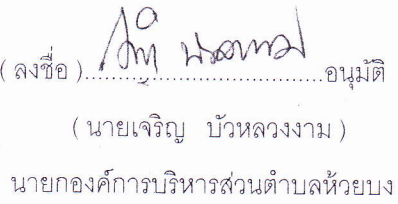 (ลงชื่อ)......................................อนุมัติ
(นายเจริญ บัวหลวงงาม)
นายกองค์การบริหารส่วนตำบลห้วยบง